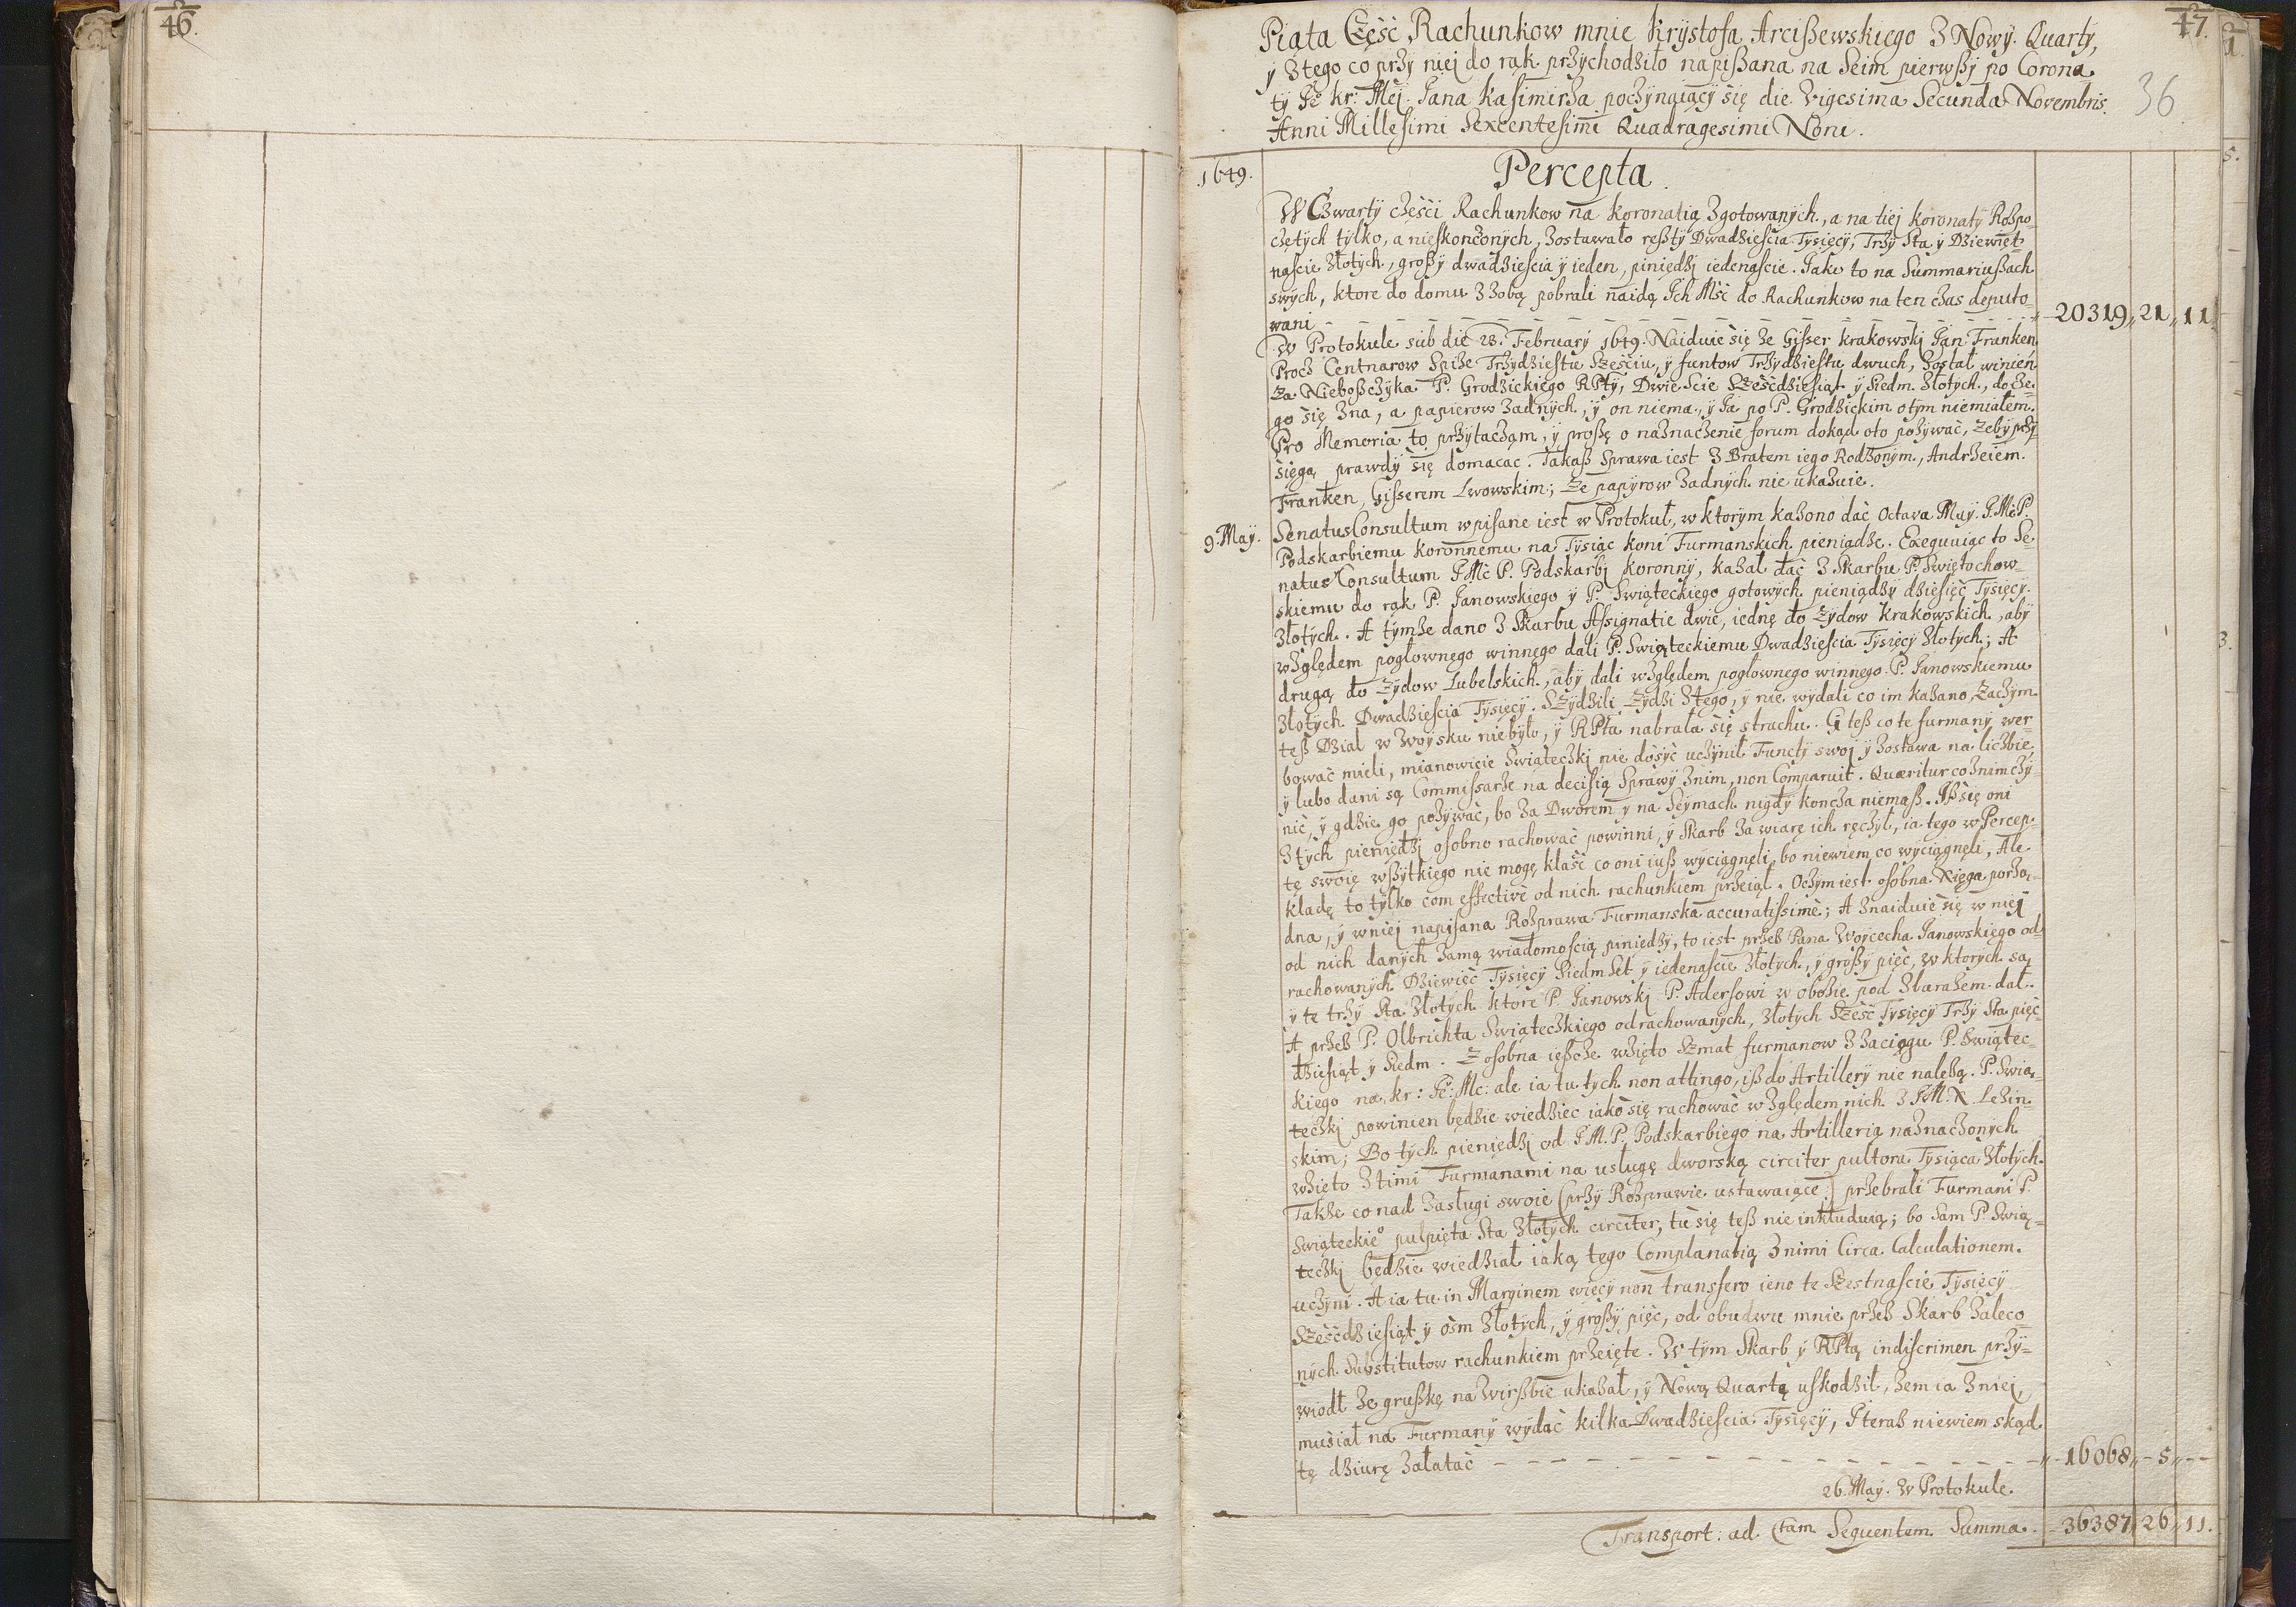 46.
47.
36
Piąta Część Rachunkow mnie Krysztofa Arcißewskiego Z Nowy Quarty,
y Ztego co przy niej do rąk przychodziło napißana na Seim pierwßy po Corona-
ty Je kr: Mći Jana Kasimirza poczynaiący się die vigesima Secunda Novembris.
Anni Millesimi Sexcentesimi Quadragesimi Noni.
1649.
Percepta.
W Czwarty części Rachunkow na koronatią Zgotowanych, a na tiej koronaty Rozpo-
czętych tylko, a nieskonczonych, Zostawało reßty Dwadziescia Tysięcy, Trzy Sta y Dziewięt-
nascie Złotych, großy dwadziescia y ieden, piniędzj iedenascie. Jako to na Summariußach
swych, ktore do domu Z Sobą pobrali naidą Ich Mść do Rachunkow na ten czas deputo-
wani - - - 20319,, 21,, 11.
W Protokule sub die 28. February 1649. Naiduie się że Gisser krakowski Jan Franken
Procz Centnarow Spiże Trzydziestu Sześciu, y funtow Trzydziestu dwuch, Został winien
Za Nieboßczyka P. Grodzickiego RPty, Dwie Scie Sześćdziesiąt y Siedm Złotych, do cze-
go się Zna, a papierow Żadnych, y on niema, y Ja po P. Grodzickim otym niemiałem.
Pro Memoria to przytaczam, y proßę o naznaczenie forum dokąd oto pozywać, Zeby przy-
sięgą prawdy się domacac. Takaß Sprawa iest Z Bratem iego Rodzonym, Andrzeiem
Franken, Gisserem Lwowskim; Ze papyrow Żadnych nie ukazuie.
9. May.
SenatusConsultum wpisane iest w Protokuł, w ktorym kazono dać Octava May J.Mć P.
Podskarbiemu koronnemu na Tysiąc koni Furmanskich pieniądze. Exequuiąc to Se-
natus Consultum JMć P. Podskarbj koronny, kazał dać Z Skarbu P. Swiętochow-
skiemu do rąk P. Janowskiego y P. Swiąteckiego gotowych pieniądzy dziesięć Tysięcy
Złotych. A tymże dano Z Skarbu Assignatie dwie, iednę do Żydow krakowskich, aby
względem pogłownego winnego dali P. Swiąteckiemu Dwadziescia Tysięcy Złotych; A
drugą do Żydow Lubelskich, aby dali względem pogłownego winnego P. Janowskiemu
Złotych Dwadziescia Tysięcy. Szydzili Żydzi Ztego, y nie wydali co im kazano, Zaczym
teß Dział w woysku niebyło, y RPta nabrała się strachu. Ci teß co te furmany wer-
bować mieli, mianowicie Swiąteczkj nie dosyć uczynił Functy swoj y Zostawa na liczbie,
y lubo dani są Commissarze na decisią Sprawy Znim, non Comparuit. Quæritur co Znim czy-
nić, y gdzie go pozywać, bo Za Dworem y na Seymach nigdy koncza niemaß. Jß się oni
Ztych pieniędzj osobno rachować powinni, y Skarb Za wiarę ich ręczył, ia tego w Percep-
tę swoię wßytkiego nie mogę kłaść co oni iuß wyciągnęli, bo niewiem co wyciągnęli, Ale
kladę to tylko com effective od nich rachunkiem przeiął. Oczym iest osobna Xięga porzą-
dna, y w niej napisana Rozprawa Furmanska accuratissime; A Znaiduie się w niej
od nich danych Zamą wiadomoscią piniędzy, to iest przeb Pana Woycecha Janowskiego od-
rachowanych Dziewięć Tysięcy Siedm Set y iedenascie Złotych, y großy pięć, w ktorych są
y te trzy Sta Złotych ktore P. Janowskj P. Adersowi w obozie pod Zbarażem dał.
A przeb P. Olbrichta Swiąteczkiego odrachowanych, Złotych Sześć Tysięcy Trzy Sta pięć-
dziesiąt y Siedm. Z osobna ießcze wzięto Szmat furmanow Z Zaciągu P. Swiątec-
kiego na kr: Je: Mć: ale ia tu tych non attingo, iß do Artillery nie należą. P. Swią-
teczkj powinien będzie wiedziec iako się rachować względem nich Z J.M. X. Lezin-
skim; Bo tych pieniędzj od J.M.P. Podskarbiego na Artillerią naznaczonych
wzięto Ztimi Furmanami na usługę dworską circiter pułtora Tysiąca Złotych.
Także co nad Zasługi swoie (przy Rozprawie ustawaiące) przebrali Furmani P.
Swiąteckie° pułpięta Sta Złotych circiter, tu się teß nie inkluduią; bo Sam P. Swią-
teczkj będzie wiedział iaką tego Complanatią Znimi Circa Calculationem
uczyni. A ia tu in Marginem więcy non transfero ieno te Szestnascie Tysięcy
Sześćdziesiąt y ośm Złotych, y großy pięć, od obudwu mnie przeb Skarb Zaleco-
nych Substitutow rachunkiem przeięte. W tym Skarb y RPtą indiscrimen przy-
wiodł że grußkę na Zwirßbie ukazał, y Nową Quartą uskodził, Żem ia Zniej,
musiał na Furmany wydać kilka Dwadziescia Tysięcy, I teraz niewiem skąd
tę dziurę Załatać - - - 16068,, - 5,, - -
26. May. W Protokule.
Transport: ad Ctam Sequentem Summa. 36387,, 26,, 11.